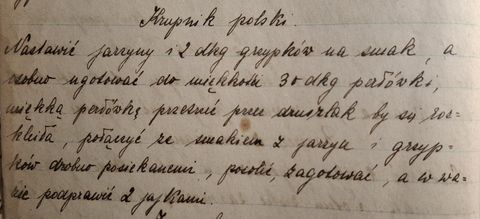 Krupnik polski.
Nastawić jarzyny i 2 dkg grzypków na smak, a
osobno ugotować do miękkości 30 dkg perłówki,
miękką perłówkę przetrzeć przez druszlak by się roz-
kleiła, połączyć ze smakiem z jarzyn i grzyp-
ków drobno posiekanemi, posolić, zagotować, a w wa-
zie podprawić 2 jajkami.